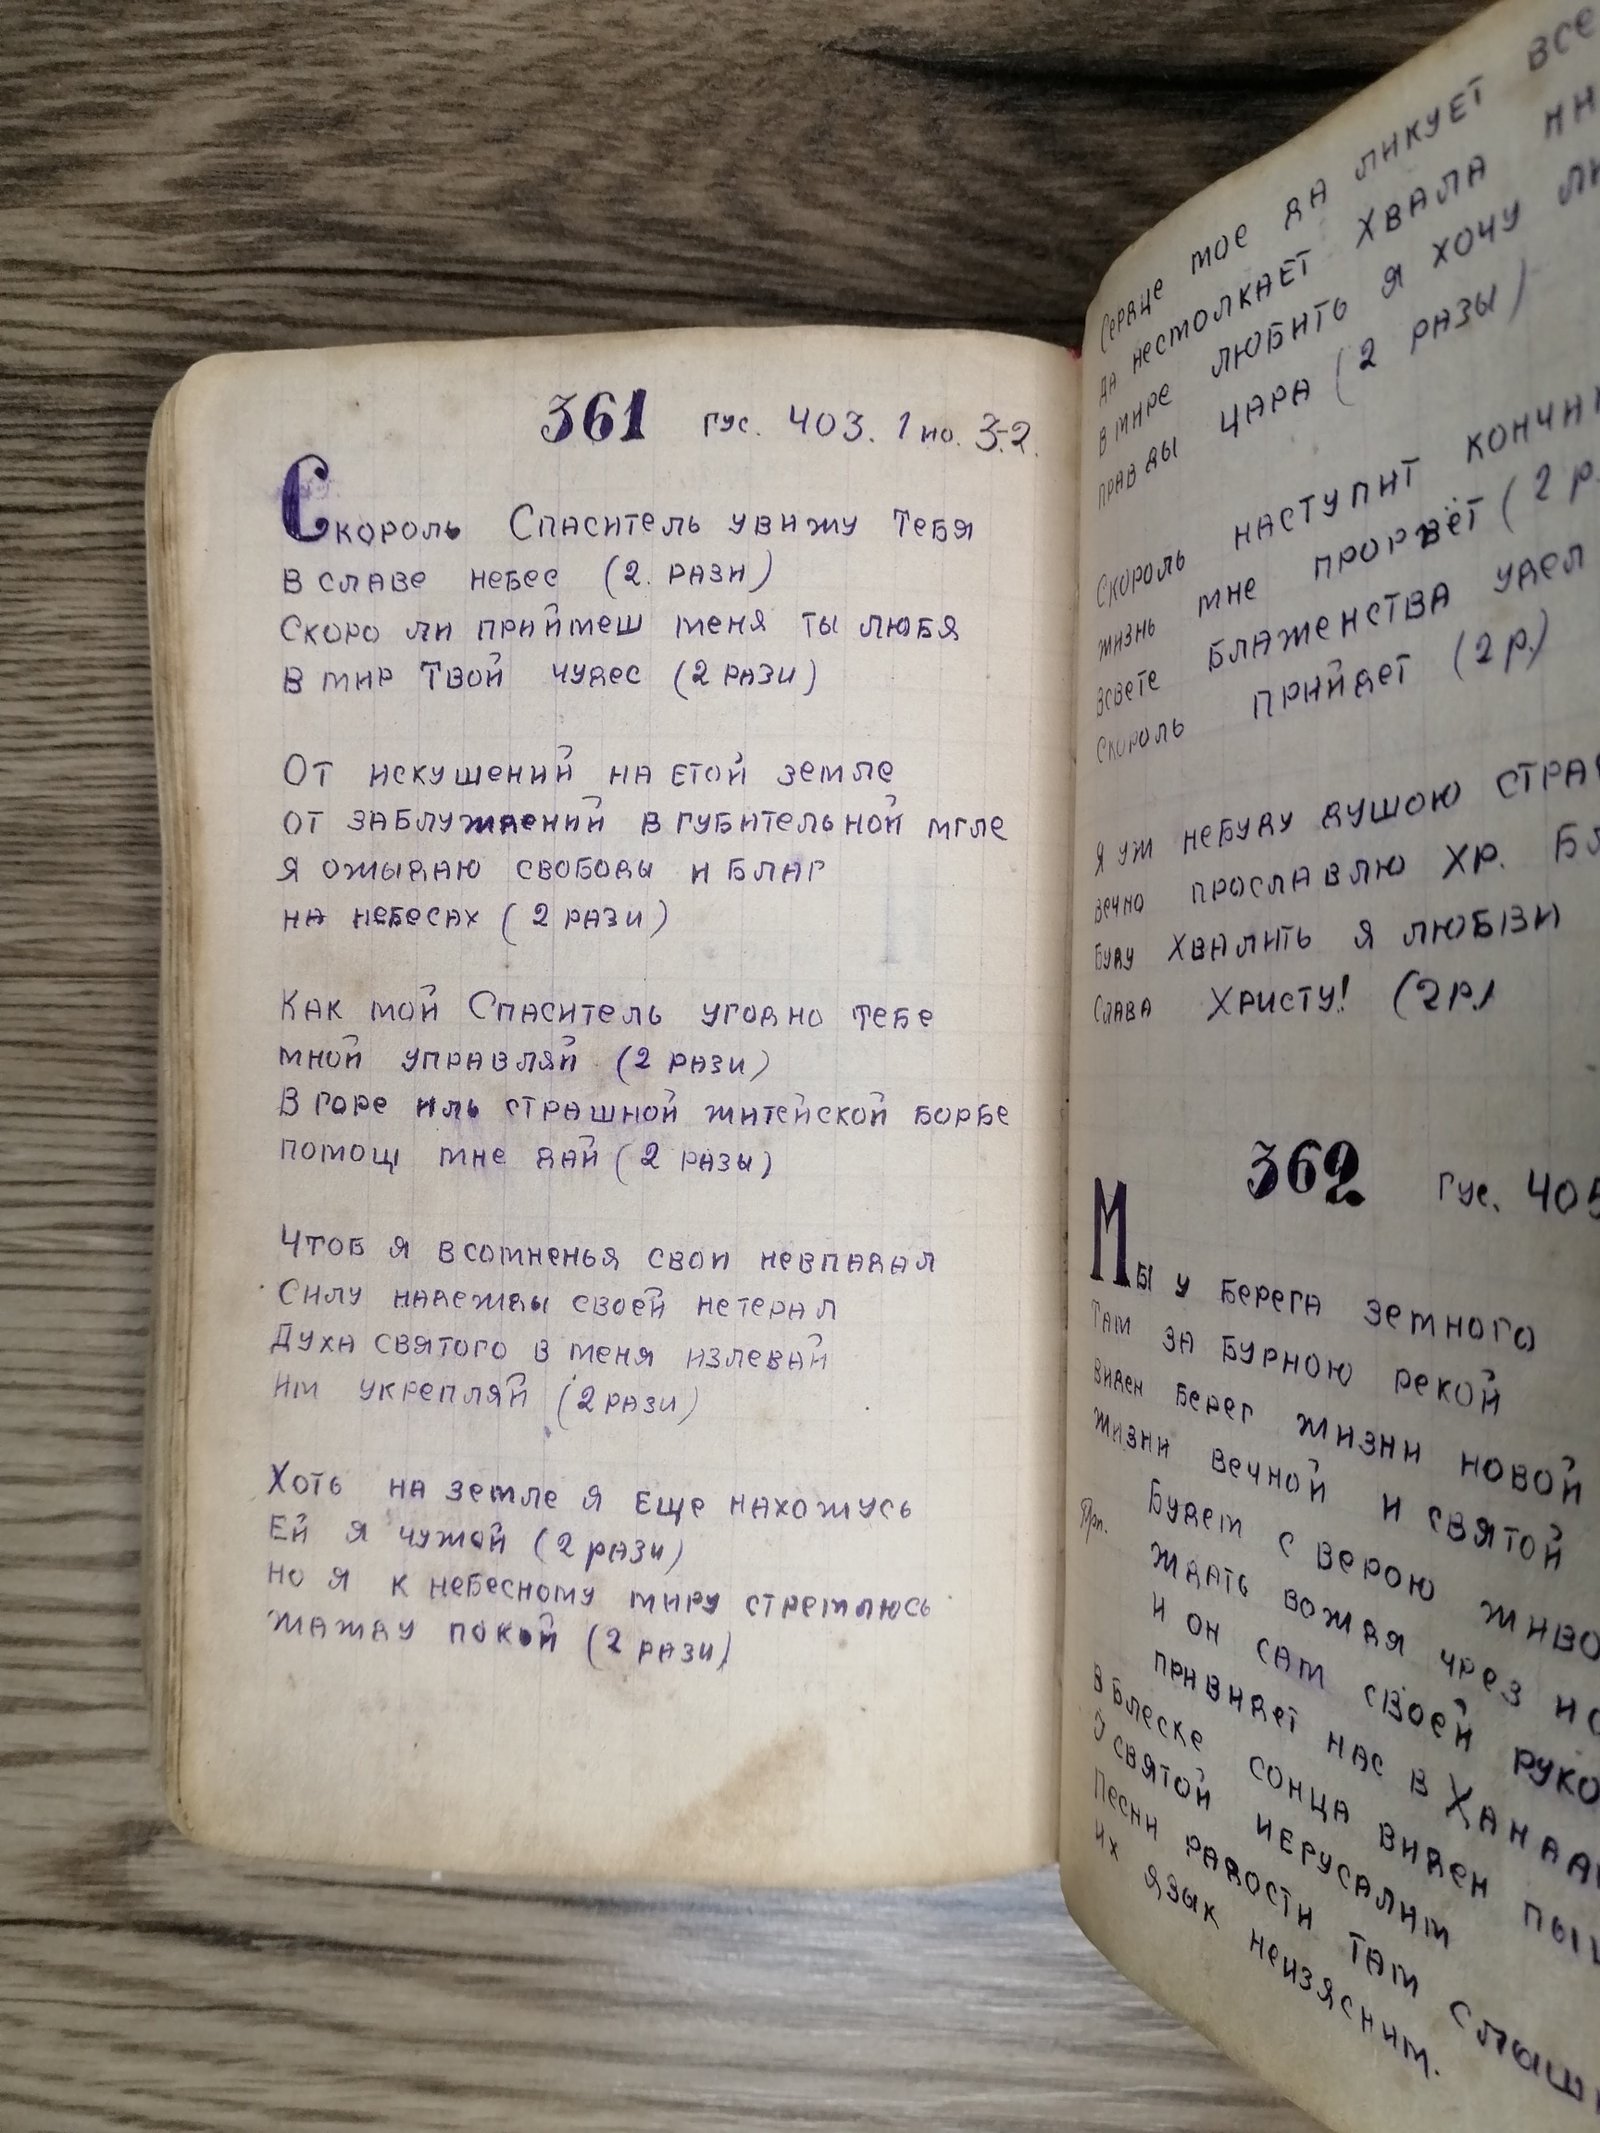 361 Гус. 403. 1 но. 3-2.
Скороль Спаситель увижу тебя
в славе небес (2. рази)
Скоро ли приймеш меня ты любя
в мир Твой чудес (2 рази)
От искушений на етой земле
от заблуждений в губительной мгле
я ожыдаю свободы и благ
на небесах (2 рази)
Как мой Спаситель угодно тебе
мной управляй (2 рази)
В горе иль страшной житейской борбе
помощ мне дай (2 разы)
Чтоб я всомненья свои невпадал
Силу надежды своей нетерал
Духа святого в меня излевай
им укрепляй (2 рази)
Хоть на земле я еще нахожусь
Ей я чужой (2 рази)
но я к небесному миру стремлюсь
жажду покой (2 рази)
Сердце мое да ликует все
да несмолкает хвала
в мире любить я хочу
правды царя (2 разы)
Скороль наступит
жизнь мне прорвёт (2 р.
всвете блаженства удел
Скороль прийдет (2 р.)
я уж небуду душою
вечно прославлю Хр.
буду хвалить я
Слава Христу! (2р.)
362 Гус. 405
Мы у берега земного
Там за бурною рекой
виден берег жизни новой
жизни вечной и святой
Прп. Будем с верою
ждать вождя чрез
и он сам своей
привидет нас в
в блеске сонца виден
О святой иерусалим
Песни радости там
их язык неизясним.